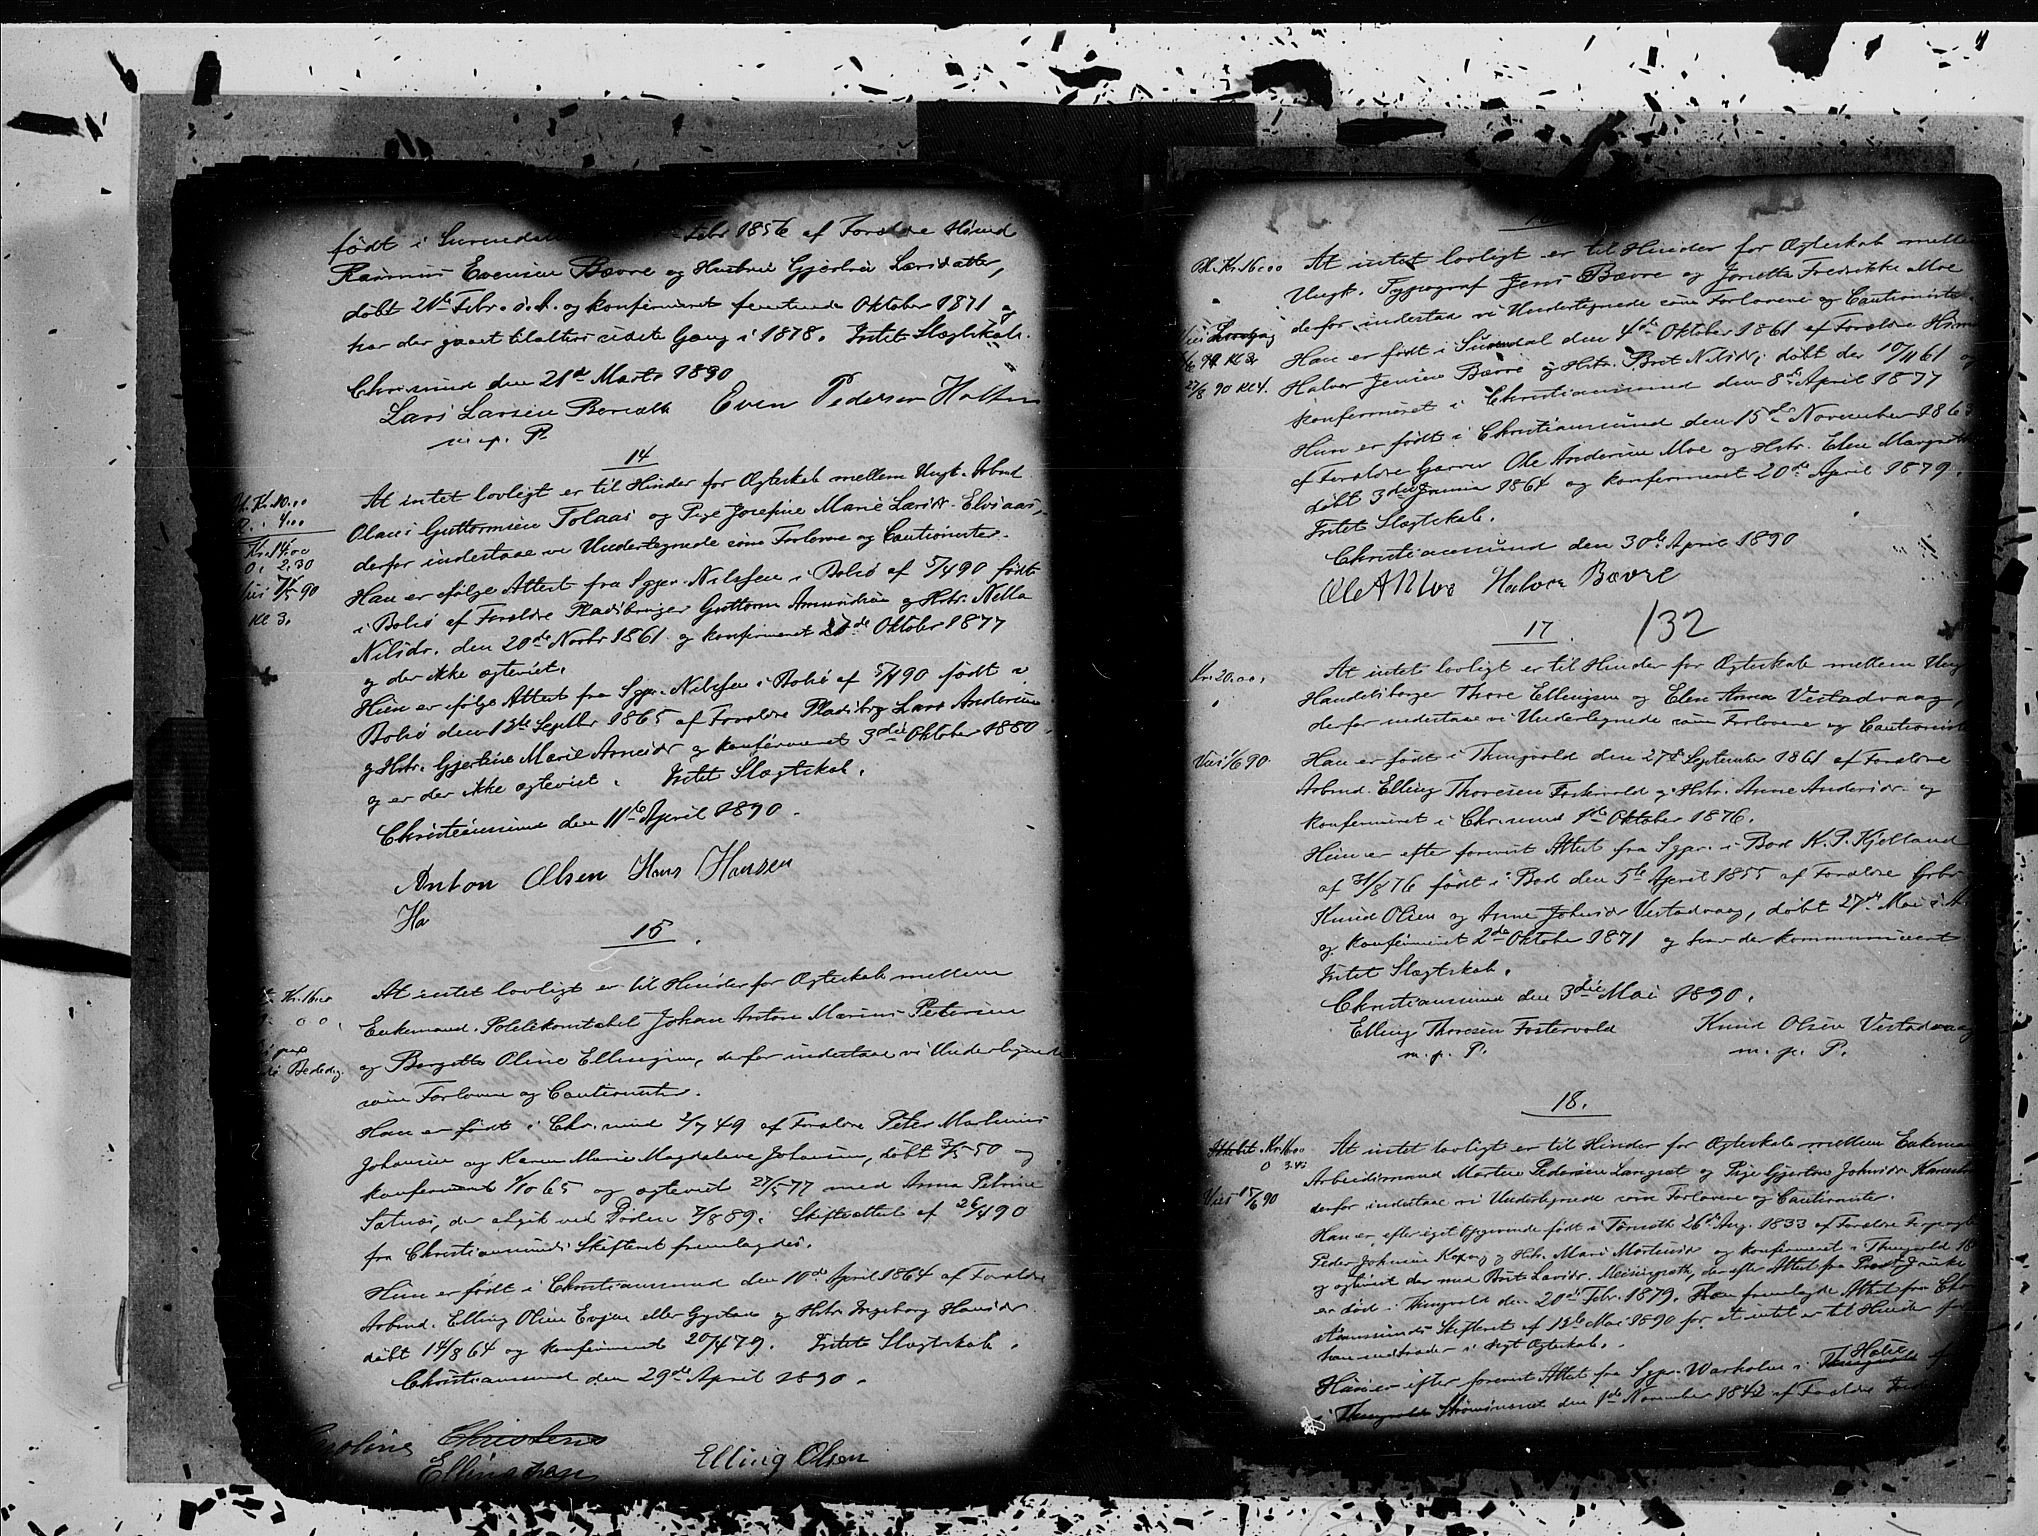 født i Surendal Febr 1856 af Forældre Hmnd
Rasmus Evensen Bævre og Hustru Gjertru Larsdatter,
døbt 21de Febr. s. A. og konfirmeret femtende Oktober 1871 og
har der gaaet til alters sidste Gang i 1878. Intet Slægtskab.
Chrsund den 21de Marts 1890
Lars Larsen Even Pedersen Holten
m. p. P.
14
Kr. 10.00
4.00
Kr. 14.00
2.30
Viet 90
Kl 3.
At intet lovligt er til Hinder for Ægteskab mellem Ungk. Arbmd
Olaus Guttormsen Tolaas og Pige Josefine Marie Larsdr. Elvsaas,
derfor indestaae vi Undertegnede som Forlovere og Cautionister.
Han er ifølge Attest fra Sgpr. Nilssen i Bolsø af 5/4 90 født
i Bolsø af Forældre Pladsbruger Guttorm Amundsen og Hstr. Nella
Nilsdr. den 20de Novbr 1861 og konfirmeret 21de Oktober 1877
og der ikke ægteviet.
Hun er ifølge Attest fra Sgpr. Nilssen i Bolsø af 5/4 90 født i
Bolsø den 12te Septbr 1865 af Forældre Pladsbrg Lars Andersen
og Hstr. Gjertine Marie Arnesdr og konfirmeret 3die Oktober 1880
og er der ikke ægteviet. Intet Slægtskab.
Christiansund den 11te April 1890.
Anton Olsen Hans Hansen
Ha
15.
Kr. 16.00
0 0.
Bededag.
At intet lovligt er til Hinder for Ægteskab mellem
Enkemand. Politikonstabel Johan Anton Marius Petersen
og Bergitte Oline Ellingsen, derfor indestaae vi Undertegnede
som Forlovere og Cautionister.
Han er født i Chr.sund 49 af Forældre Peter Martinus
Johansen og Karen Marie Magdalene Johansen, døbt 3/3 50 og
konfirmeret 1/10 65 og ægteviet 27/5 77 med Anna Petrine
Sætnæs, der afgik ved Døden 7/8 89. Skifteattest af 26/4 90
fra Christiansunds Skifteret fremlagdes.
Hun er født i Christiansund den 10de April 1864 af Forældre
Arbmd. Elling Olsen Evjen eller Gystad og Hstr. Ingeborg Hansdr.
døbt 14/8 64 og konfirmeret 20/4 79. Intet Slægtskab.
Christiansund den 29de April 1890.
Christens
Ellingsen Elling Olsen
Bl. Kr. 16.00
Viet Lovisdag
27/8 90 Kl 4.
At intet lovligt er til Hinder for Ægteskab mellem
Ungk. Typograf Jens Bævre og Jonette Fredrikke Moe
derfor indestaa vi Undertegnede som Forlovere og Cautionister.
Han er født i Surendal den 4de Oktober 1861 af Forældre Hmnd
Halvor Jensen Bævre og Hstr. Brit Nilsdr, døbt den 10/11 61 og
konfirmeret i Christiansund den 8de April 1877
Hun er født i Christiansund den 15de November 1863
af Forældre Garver Ole Andersen Moe og Hstr. Elen Margrethe
døbt 3die Januar 1864 og konfirmeret 20de April 1879.
Intet Slægtskab.
Christiansund den 30te April 1890
Ole A Moe Halvor Bævre
17. 132
Kr. 20.00.
Viet 1/6 90
At intet lovligt er til Hinder for Ægteskab mellem Ung
Handelsborger Thore Ellingsen og Elen Anna Vestadvaag,
derfor indestaae vi Undertegnede som Forlovere og Cautionister
Han er født i Thingvold den 27de September 1861 af Forældre
Arbmd. Elling Thoresen Fostervold og Hstr. Anne Andersdr. og
konfirmeret i Chr.sund 1ste Oktober 1876.
Hun er efter forevist Attest fra Sgpr. i Bod K. P. Kjelland
af 3/8 76 født i Bod den 5te April 1855 af Forældre Gbr
Knud Olsen og Anne Johnsdr Vestadvaag, døbt 27de Mai s. A.
og konfirmeret 2den Oktober 1871 og har der kommuniceret
Intet Slægtskab.
Christiansund den 3die Mai 1890.
Elling Thoresen Fostervold Knud Olsen Vestadvaag
m. p. P. m. p. P.
18.
Kr. 16.00
0 3.45
Viet 15/6 90
At intet lovligt er til Hinder for Ægteskab mellem Enkemand
Arbeidsmand Morten Pedersen Langsæt og Pige Gjertine Johnsdr.
derfor indestaae vi Undertegnede som Forlovere og Cautionister.
Han er efter eget Opgivende født i den 26de Aug. 1833 af Forældre
Peder Johnsen og Hstr. Mari Mortensdr og konfirmeret i Thingvold 18
og ægteviet der med Brit Larsdr. Meisingseth, der efter Attest fra Provst
er død i Thingvold den 20de Febr. 1879. Han fremlagde Attest fra Chr
stianssunds Skifteret af 12te Mai 1890 for at intet er til Hinder for
han indtræder i nyt Ægteskab.
Hun er efter forevist Attest fra Sgpr. Warholm i Thingvold Halse af
i Thingvold Strømsneset den 1ste November 1842 af Forældre